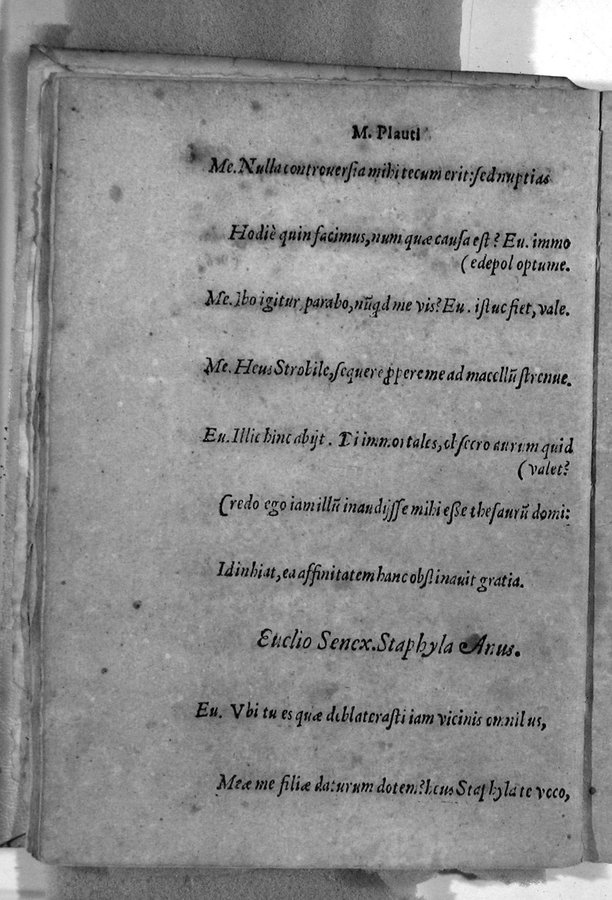 M. Plauti
Me. Nulla controuersia mihi tecum erit: sed nuptias
Hodiè quin facimus, num quæ causa est? Eu. immo
(edepol optume.
Me. Ibo igitur, parabo, nũqd me vis? Eu. istuc fiet, vale.
Me. Heus Strobile, sequere ꝓpere me ad macellũ strenue.
Eu. Illic hinc abijt. Di immortales, obsecro aurum quid
(valet?
Credo ego iam illũ inaudijsse mihi esse thesaurũ domi:
Id inhiat, ea affinitatem hanc obstinauit gratia.
Euclio Senex. Staphyla Anus.
Eu. Vbi tu es quæ deblaterasti iam vicinis omnibus,
Meæ me filiæ daturum dotem? heus Staphyla te voco,